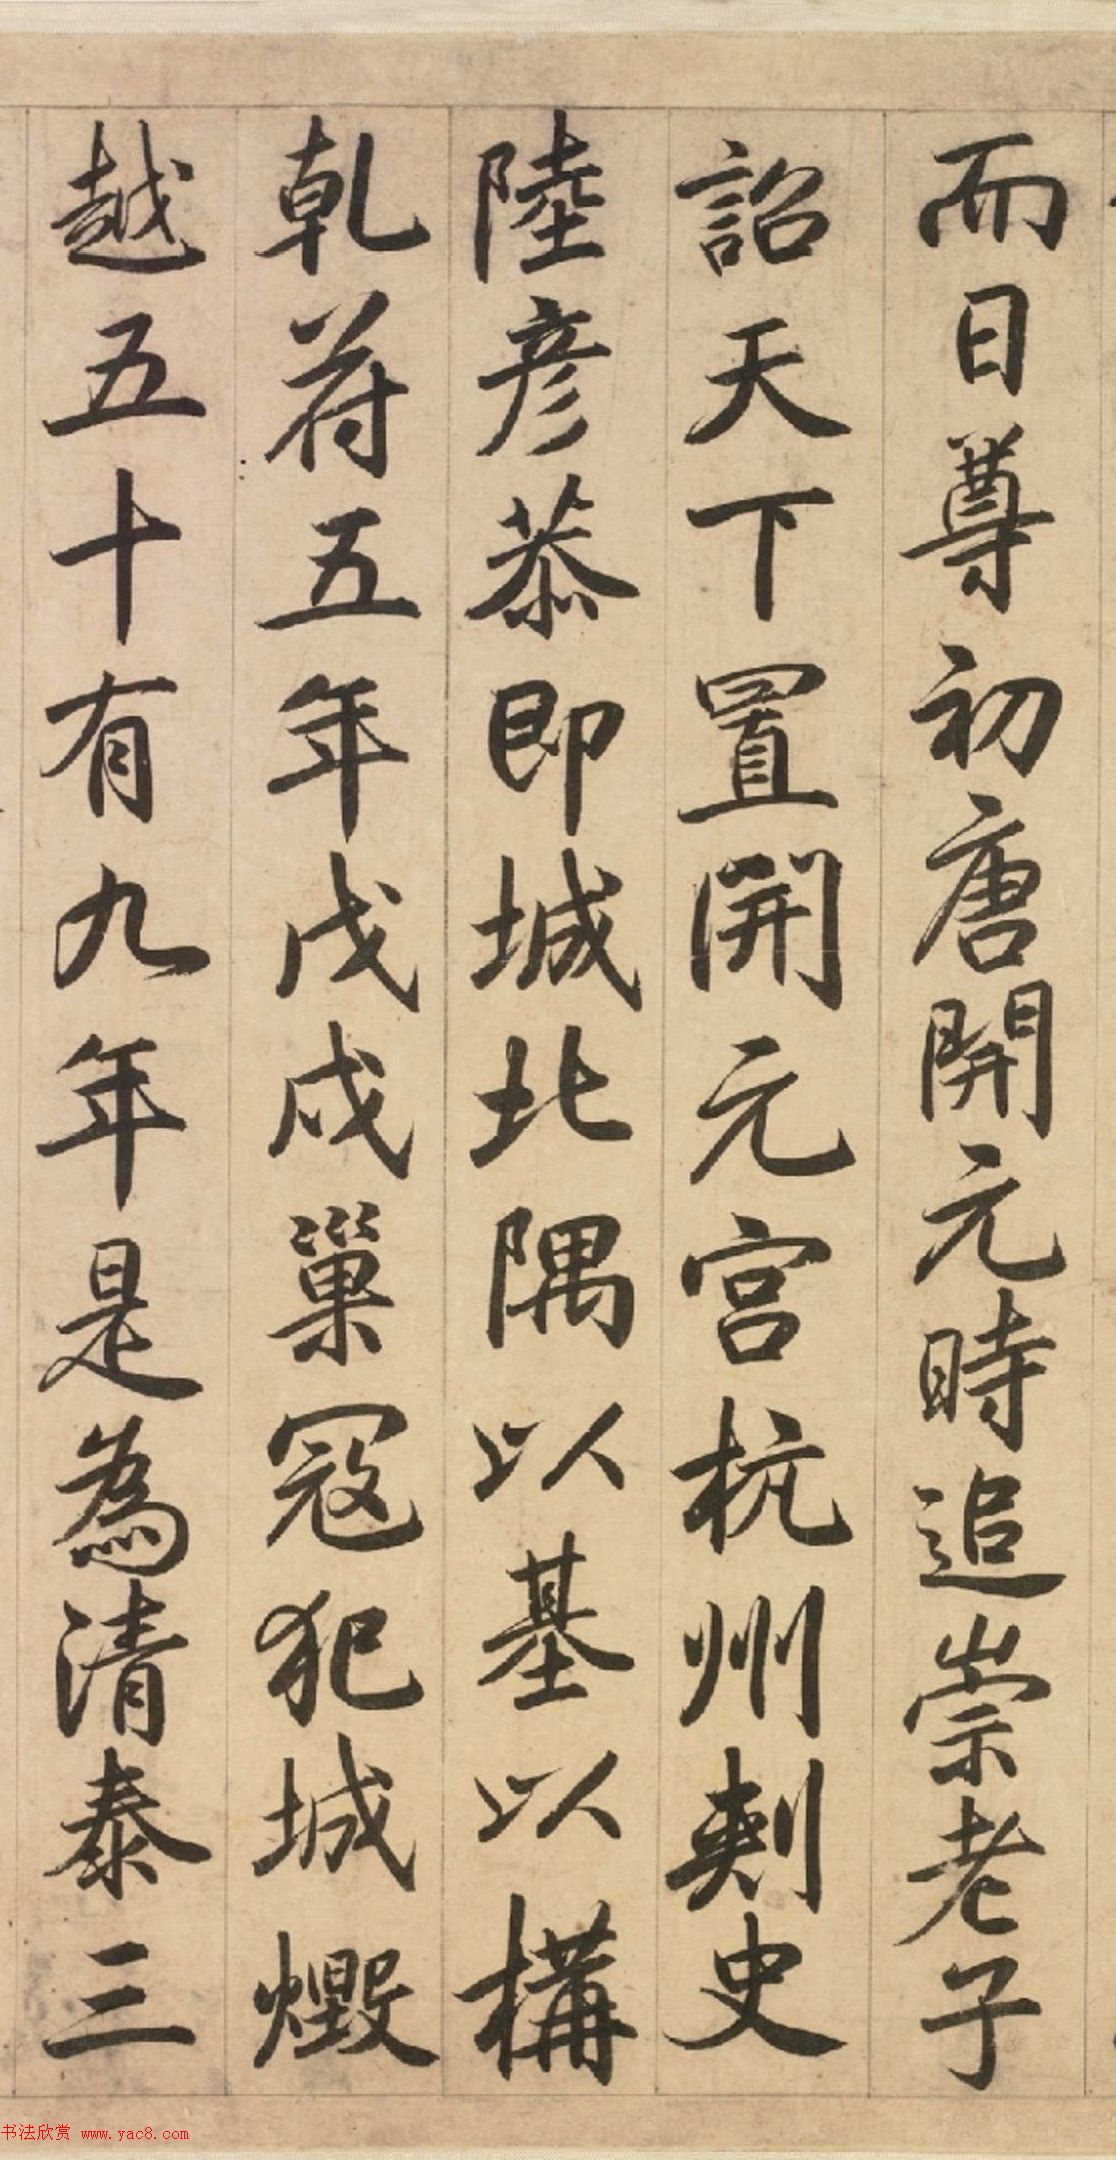 而日尊初唐開元時追崇老子
詔天下置開元宮杭州刺史
陸彦恭即城北隅以基以構
乾符五年戊戌巢寇犯城燬
越五十有九年是為清泰三
书法欣赏 www.yac8.com